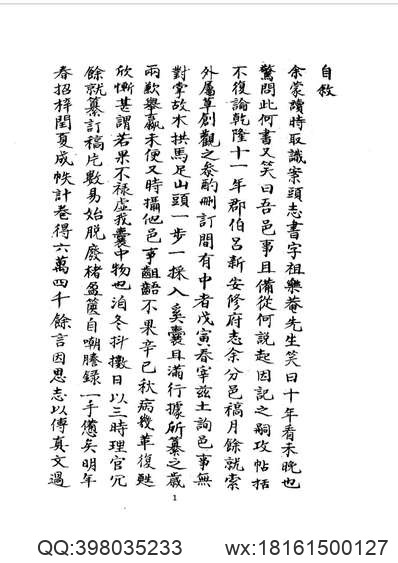 自敘
余蒙讀時取識案頭志書字祖樂菴先生笑曰十年看未晚也
驚問此何書又笑曰吾邑事且備從何說起因記之嗣攻帖括
不復論乾隆十一年郡伯呂新安修府志余分邑稿月餘就索
外屬草創觀之叅酌刪訂間有中者戊寅春宰兹土詢邑事無
對掌故木拱馬足山頭一步一採入奚囊且滿行據所纂之歲
兩歉舉羸未便又時攝他邑事齟齬不果辛巳秋病幾革復甦
欣慚甚謂若果不祿處我囊中物也洎冬抖擻日以三時理官冗
餘就纂訂稿片數易始脫廢楮盈篋自嘲謄錄一手憊矣明年
春招梓閏夏成帙計卷得六萬四千餘言因思志以傳真文過
1
QQ:398035233 wx:18161500127